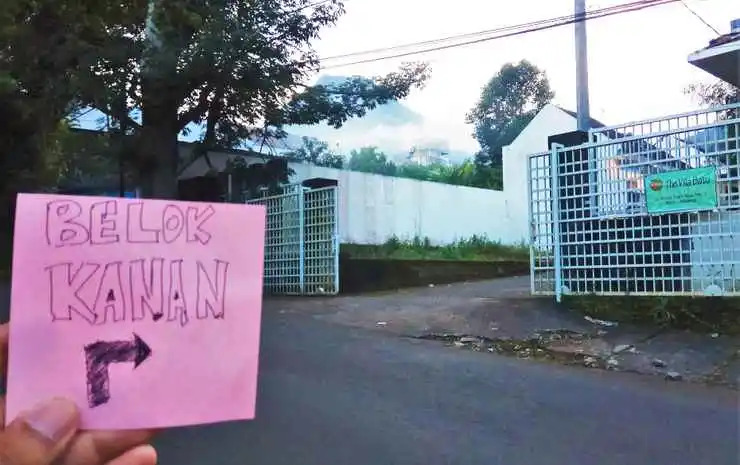 BELOK
KANAN
The Villa Batu